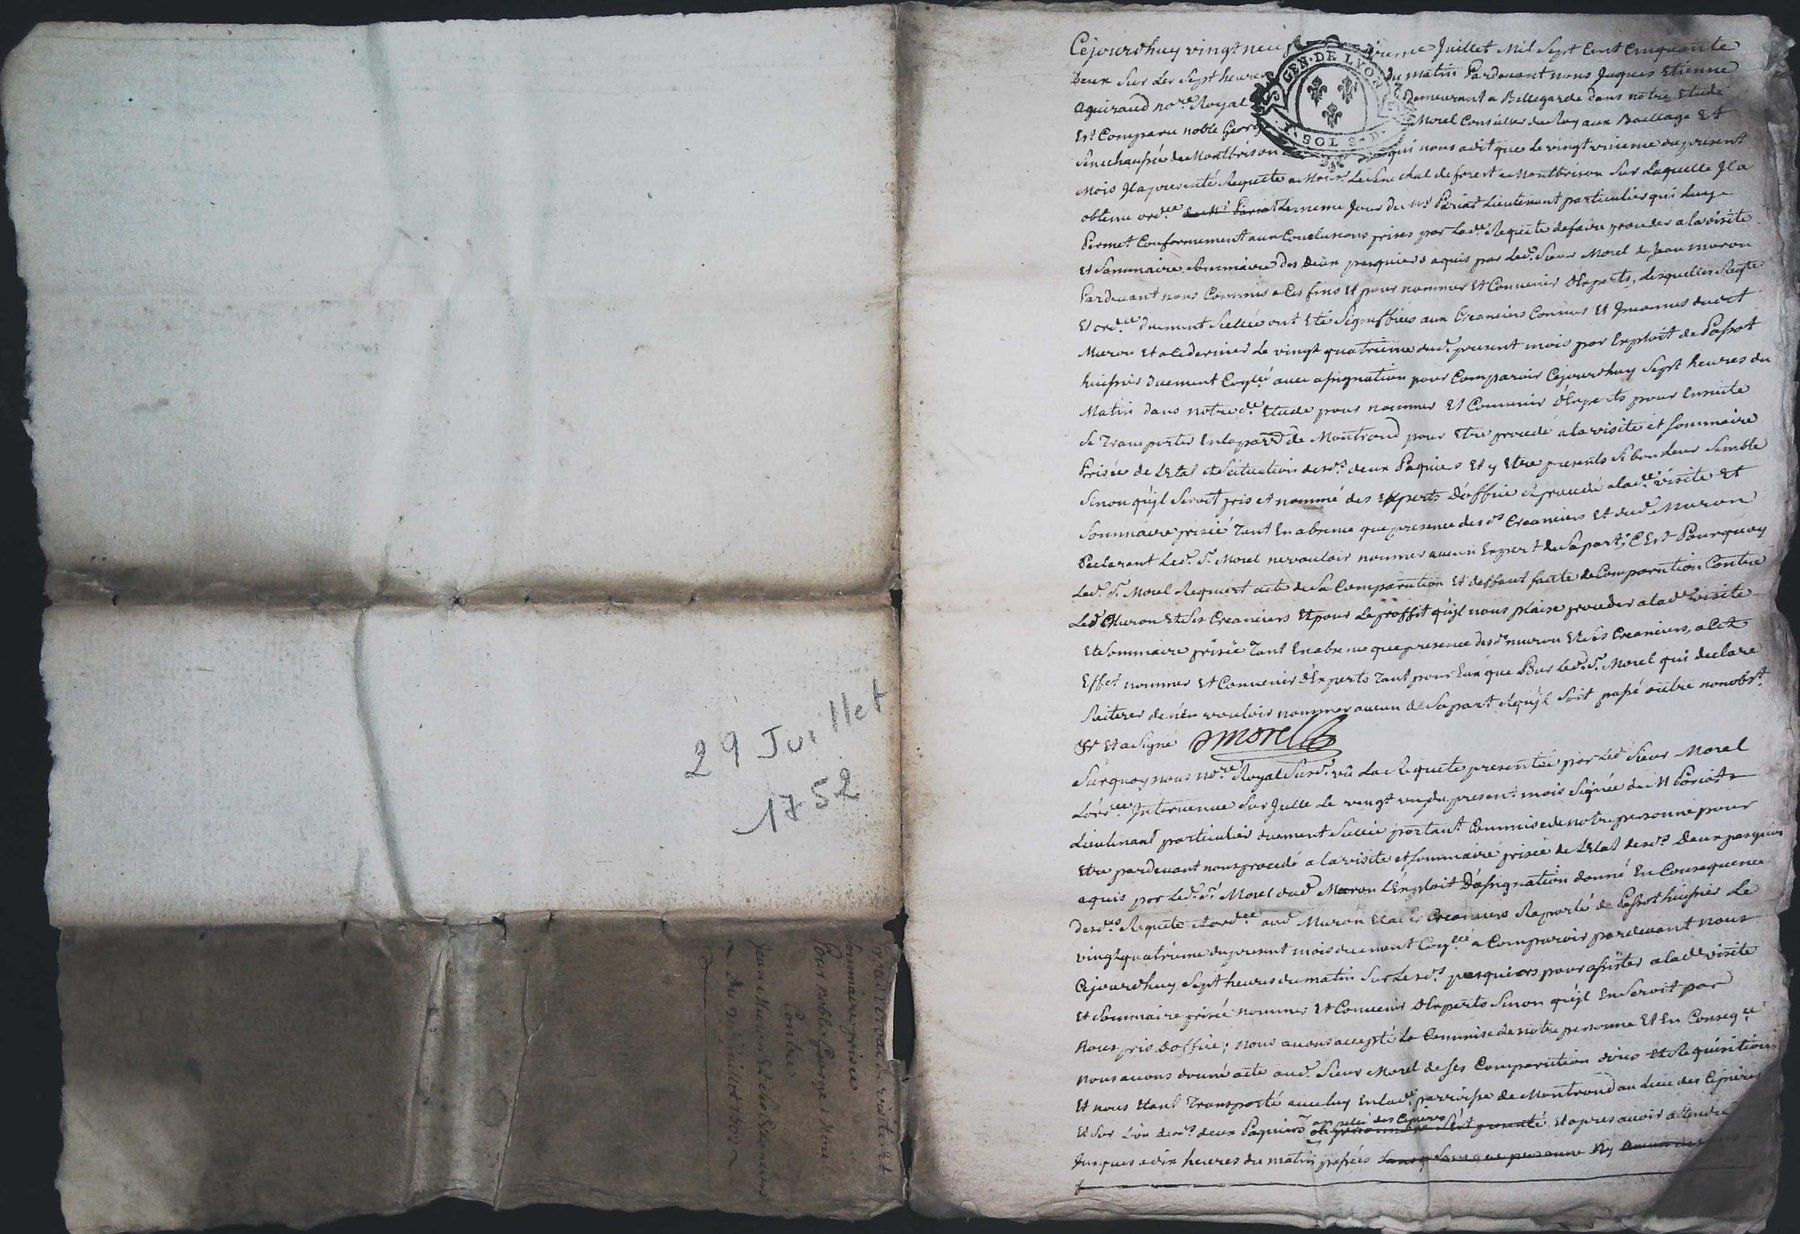 29 Juillet
1752
Procès verbal de visitte et
sommaire prisée
Pour noble George Morel
Contre
Jean Muron Et ses Creanciers
Du 29e Juillet 1752
GEN. DE LYON
SOL
Cejourdhuy vingt neuf Juillet Mil Sept Cent Cinquante
Deux Sur Les Sept heures du matin Pardevant nous Jaques Etienne
Aguiraud nore. Royal Demeurant a Bellegarde dans notre Etude
Est Comparu noble George Morel Conseiller du Roy aux Bailliage Et
Senechaussée de Montbrison qui nous a dit que Le vingt unieme du present
Mois Jl a presenté Requête a Le Senechal de forest a Montbrison Sur Laquelle Jl a
obtenu ordce. de Mr Pariat Le meme Jour du Mr Pariat Lieutenant particulier qui Luy
Permet Conformement aux Conclusions prises par Lade. Requête de faire proceder a la visite
Et Sommaire des Deux pasquiers aquis par Led. Sieur Morel de Jean Muron
Pardevant nous Commis a Ces fins Et pour nommer Et Convenir d'Experts, Lesquelles Reqte
Et ordce duement Scellée ont Eté Signiffiées aux Creanciers Connus Et Inconnus dudit
Muron Et a Ce dernier Le vingt quatrieme dud. present mois par Exploit de Passot
huissier duement Coñllé avec assignation pour Comparoir Cejourdhuy Sept heures du
Matin dans notre de. Etude pour nommer Et Convenir d'Experts pour Ensuite
Se Transporter En la parse de Montrond pour Etre procedé a la visite et Sommaire
Prisée de L'Etat et Scituation desds. deux Paquiers Et y Etre presents Si bon Leur Semble
Sinon qu'jl Seroit pris et nommé des Experts d'office et procedé a lade. visite Et
Sommaire prisée Tant En absence que presence desds. Creanciers Et dud. Muron
Declarant Led. Sr. Morel ne vouloir nommer aucun Expert de Sa part, C'Est Pourquoy
Led. Sr. Morel Requiert acte de Sa Comparution Et deffaut faute de Comparution Contre
Led. Muron Et Ses Creanciers Et pour Le proffit qu'jl nous plaise proceder a lade visite
Et Sommaire prisée Tant En absence que presence desds. Muron Et ses Creanciers, a Cet
Effet nommer Et Convenir d'Experts Tant pour Eux que Pour Led. Sr. Morel qui declare
Reiterer de n'en vouloir nommer aucun de Sa part Et qu'jl Soit passé outre nonobst.
Et a Signé Morel
Surquoy nous nore. Royal Susd. vû La Requête presentée par Led Sieur Morel
L'ordce Intervenue Sur Jcelle Le vingt un du present mois Signée de M Pariat
Lieutenant particulier duement Scellée portant Commise de notre personne pour
Etre pardevant nous procedé a la visite et Sommaire prisée de L'Etat desds. Deux pasquiers
aquis par Led. Sr. Morel dud. Muron L'Exploit D'assignation donné En Consequence
desds Requête Et ordce aud. Muron Et a Ses Creanciers Raporté de Passot huissier Le
vingt quatrieme du present mois duement Coñllé a Comparoir pardevant nous
Cejourdhuy Sept heures du matin Sur Lesds. pasquiers pour assister a lade. visite
Et Sommaire prisée nommer Et Convenir d'Experts Sinon qu'jl En Seroit par
Nous pris d'office; nous avons accepté La Commise de notre personne Et En Conseqce
Nous avons donné acte aud. Sieur Morel de Ses Comparution dires Et Requisitions
Et nous Etant Transporté avec luy En lade. parroisse de Montrond au Lieu des
Et Sur L'un desds. deux Paquiers Et apres avoir attendu
Jusques a dix heures du matin passées